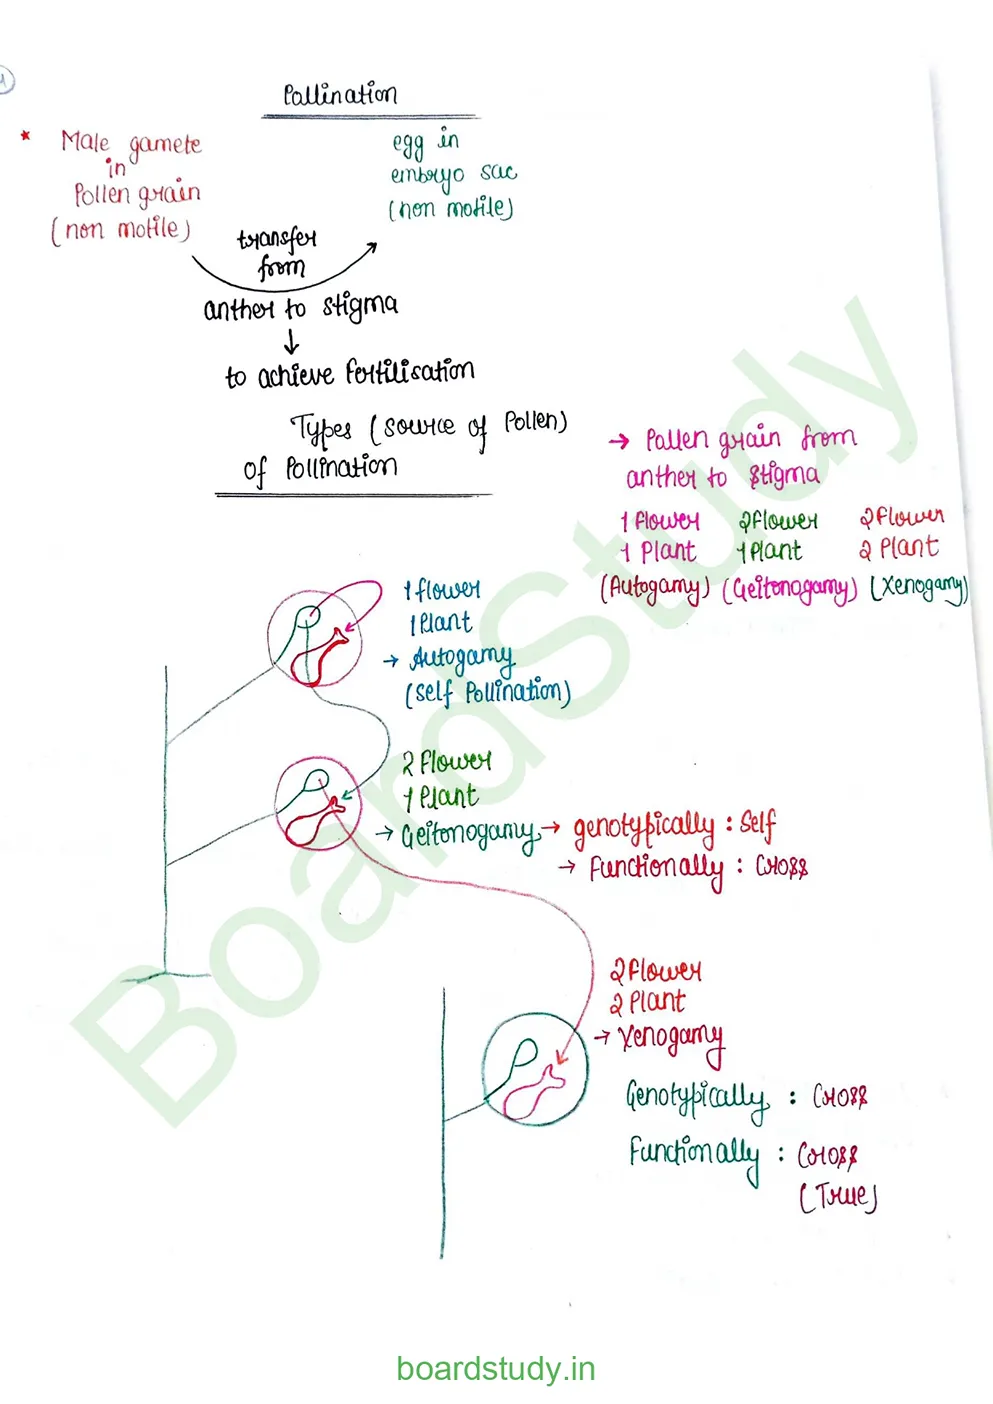 Pollination
* Male gamete
in
Pollen grain
(non motile)
egg in
embryo sac
(non motile)
transfer
from
anther to stigma
↓
to achieve fertilisation
Types (source of Pollen)
of Pollination
→ Pollen grain from
anther to stigma
1 flower 2 flower 2 Flower
1 Plant 1 Plant 2 Plant
(Autogamy) (Geitonogamy) (Xenogamy)
1 flower
1 Plant
→ Autogamy
(Self Pollination)
2 flower
1 Plant
→ Geitonogamy → genotypically : Self
→ Functionally : Cross
2 Flower
2 Plant
→ Xenogamy
Genotypically : Cross
Functionally : Cross
(True)
BoardStudy
boardstudy.in